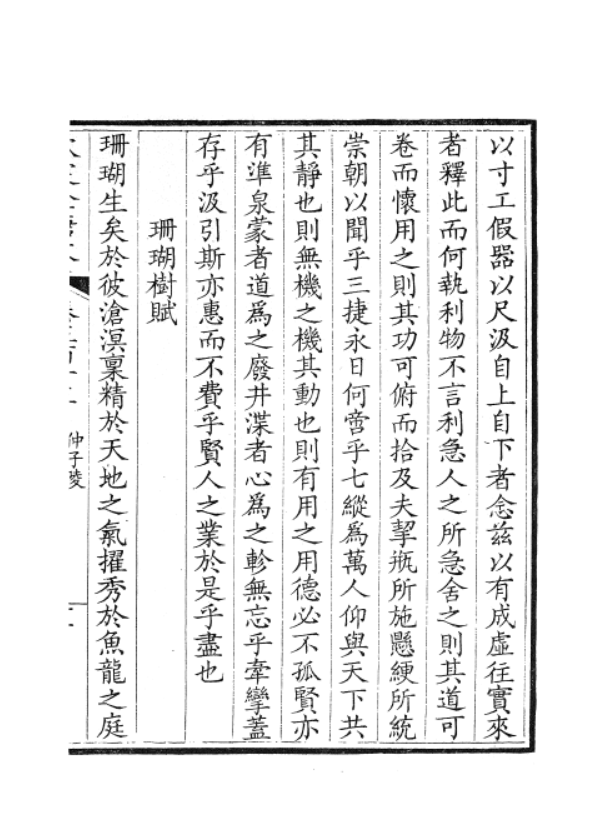 以寸工假器以尺汲自上自下者念茲以有成虛往實來
者釋此而何執利物不言利急人之所急舍之則其道可
卷而懷用之則其功可俯而拾及夫挈瓶所施懸綆所統
崇朝以聞乎三捷永日何啻乎七縱為萬人仰與天下共
其靜也則無機之機其動也則有用之用德必不孤賢亦
有準泉蒙者道為之廢井渫者心為之軫無忘乎牽攣蓋
存乎汲引斯亦惠而不費乎賢人之業於是乎盡也
珊瑚樹賦
珊瑚生矣於彼滄溟稟精於天地之氣擢秀於魚龍之庭
仲子陵